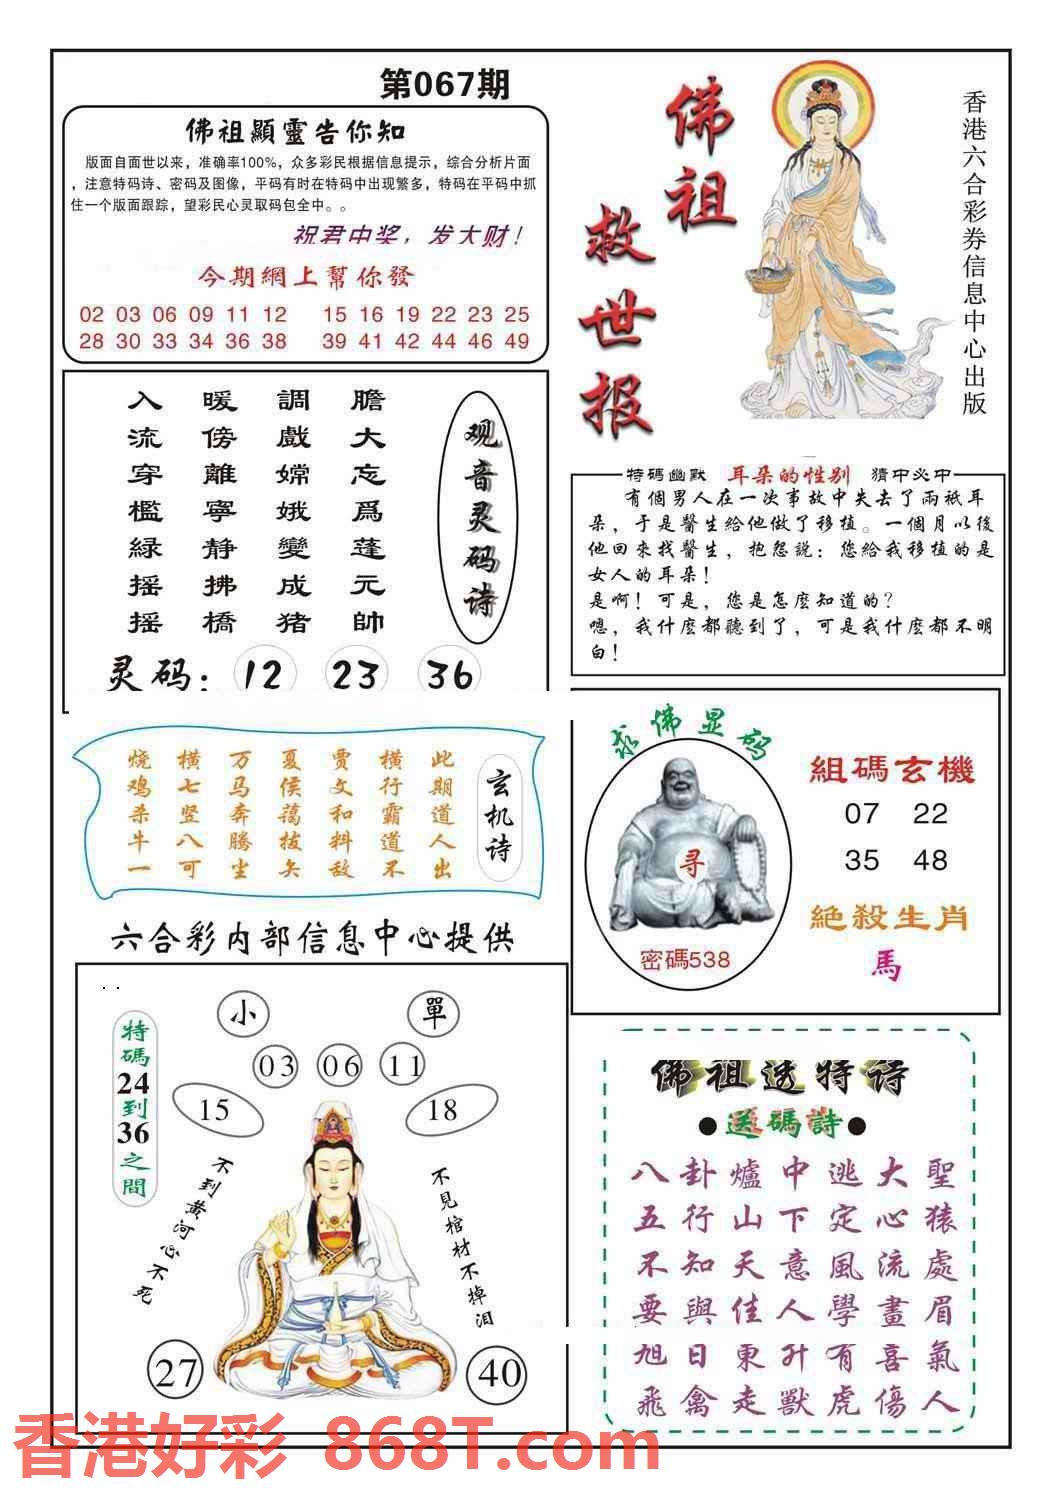 第067期
佛祖顯靈告你知
版面自面世以来，准确率100%，众多彩民根据信息提示，综合分析片面
，注意特码诗、密码及图像，平码有时在特码中出现繁多，特码在平码中抓
住一个版面跟踪，望彩民心灵取码包全中。。
祝君中奖，发大财！
今期網上幫你發
02 03 06 09 11 12 15 16 19 22 23 25
28 30 33 34 36 38 39 41 42 44 46 49
佛祖
救世报
香港六合彩券信息中心出版
观音灵码诗
膽大忘爲蓬元帥
調戲嫦娥變成猪
暖傍離寧静拂橋
入流穿檻緑摇摇
灵码：12 23 36
特碼幽默 耳朵的性别 猜中必中
有個男人在一次事故中失去了兩祇耳
朵，于是醫生給他做了移植。一個月以後
他回來找醫生，抱怨説：您給我移植的是
女人的耳朵！
是啊！可是，您是怎麽知道的？
嗯，我什麽都聽到了，可是我什麽都不明
白！
玄机诗
此期道人出
横行霸道不
贾文和料敌
夏侯蔼拔矢
万马奔腾尘
横七竖八可
烧鸡杀牛一
求佛显码
寻
密碼538
組碼玄機
07 22
35 48
絶殺生肖
馬
六合彩内部信息中心提供
小 單
03 06 11
15 18
特碼24到36之間
不到黄河心不死
不見棺材不掉泪
27 40
佛祖透特诗
●送碼詩●
八卦爐中逃大聖
五行山下定心猿
不知天意風流處
要與佳人學畫眉
旭日東升有喜氣
飛禽走獸虎傷人
香港好彩 868T.com